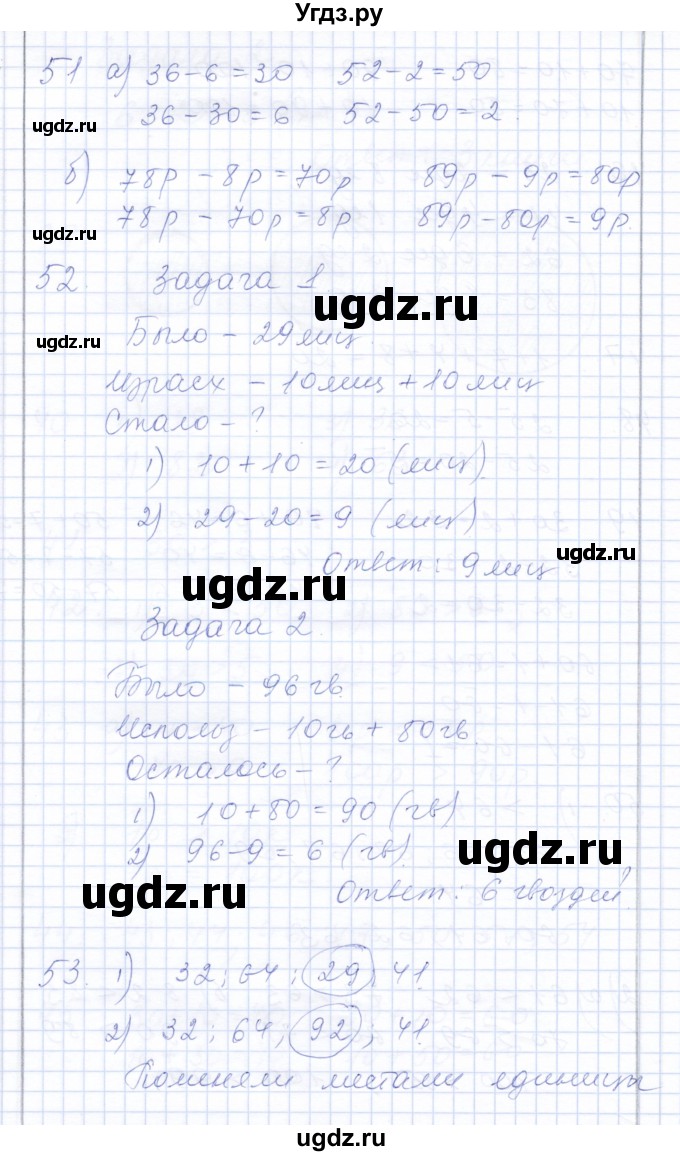 Угдз.ру
51 а) 36-6=30 52-2=50
36-30=6 52-50=2.
ugdz.ru
б) 78р - 8р=70р 89р - 9р=80р
78р - 70р=8р 89р-80р=9р.
ugdz.ru
52. Задача 1
ugdz.ru
Было - 29 лиц.
ugdz.ru
Израсх - 10лиц + 10 лиц
Стало - ?
1) 10+10=20 (лиц).
2) 29-20=9 (лиц)
Ответ: 9 лиц.
ugdz.ru
ugdz.ru
Задача 2.
Было - 96 гв.
Использ - 10гв + 80гв
Осталось - ?
1) 10+80=90 (гв)
2) 96-9=6 (гв)
ugdz.ru
Ответ: 6 гвоздей.
ugdz.ru
53. 1) 32; 64; 29; 41.
2) 32; 64; 92; 41.
Поменяли местами единицы
ugdz.ru